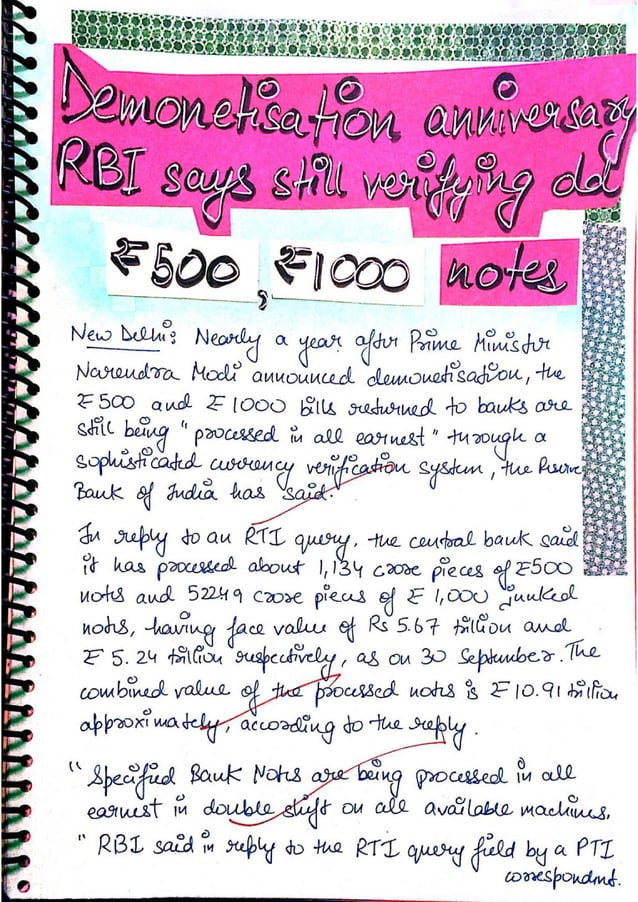 Demonetisation anniversary
RBI says still verifying old
₹500, ₹1000 notes
New Delhi: Nearly a year after Prime Minister
Narendra Modi announced demonetisation, the
₹500 and ₹1000 bills returned to banks are
still being "processed in all earnest" through a
sophisticated currency verification system, the Reserve
Bank of India has said.
In reply to an RTI query, the central bank said
it has processed about 1,134 crore pieces of ₹500
notes and 52249 crore pieces of ₹ 1,000 junked
notes, having face value of Rs 5.67 trillion and
₹ 5.24 trillion respectively, as on 30 September. The
combined value of the processed notes is ₹10.91 trillion
approximately, according to the reply.
"Specified Bank Notes are being processed in all
earnest in double shift on all available machines,
" RBI said in reply to the RTI query field by a PTI
correspondent.